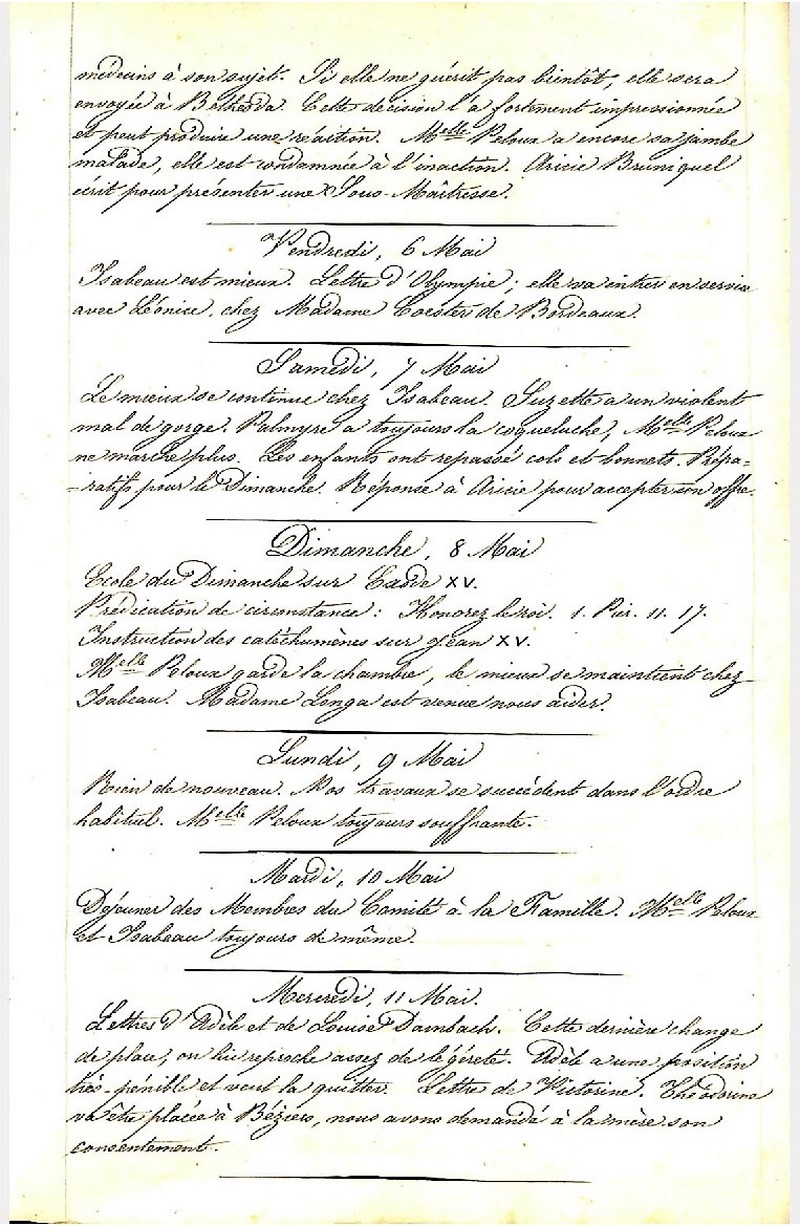 médecins à son sujet. Si elle ne guérit pas bientôt, elle sera
envoyée à Bethesda. Cette décision l'a fortement impressionnée
et peut produire une réaction. Melle Peloux a encore sa jambe
malade, elle est condamnée à l'inaction. Aricie Bruniquel
écrit pour présenter une Sous-Maîtresse.
Vendredi, 6 Mai
Isabeau est mieux. Lettre d'Olympie; elle va entrer en service
avec Léonice, chez Madame Coester de Bordeaux.
Samedi, 7 Mai
Le mieux se continue chez Isabeau. Suzette a un violent
mal de gorge. Palmyre a toujours la coqueluche, Melle Peloux
ne marche plus. Les enfants ont repassé cols et bonnets. Prépa=
=ratifs pour le Dimanche. Réponse à Aricie pour accepter son offre.
Dimanche, 8 Mai
Ecole du Dimanche sur Exode XV.
Prédication de circonstance: Honorez le roi. 1. Pier. 11. 17.
Instruction des catéchumènes sur Jean XV.
Melle Peloux garde la chambre, le mieux se maintient chez
Isabeau. Madame Longa est venue nous aider.
Lundi, 9 Mai
Rien de nouveau. Nos travaux se succèdent dans l'ordre
habituel. Melle Peloux toujours souffrante.
Mardi, 10 Mai
Déjeuner des Membres du Comité à la Famille. Melle Peloux
et Isabeau toujours de même.
Mercredi, 11 Mai.
Lettres d'Adèle et de Louise Dambach. Cette dernière change
de place, on lui reproche assez de légéreté. Adèle a une position
très-pénible et veut la quitter. Lettre de Victorine. Théodorine
va être placée à Béziers, nous avons demandé à la mère son
consentement.